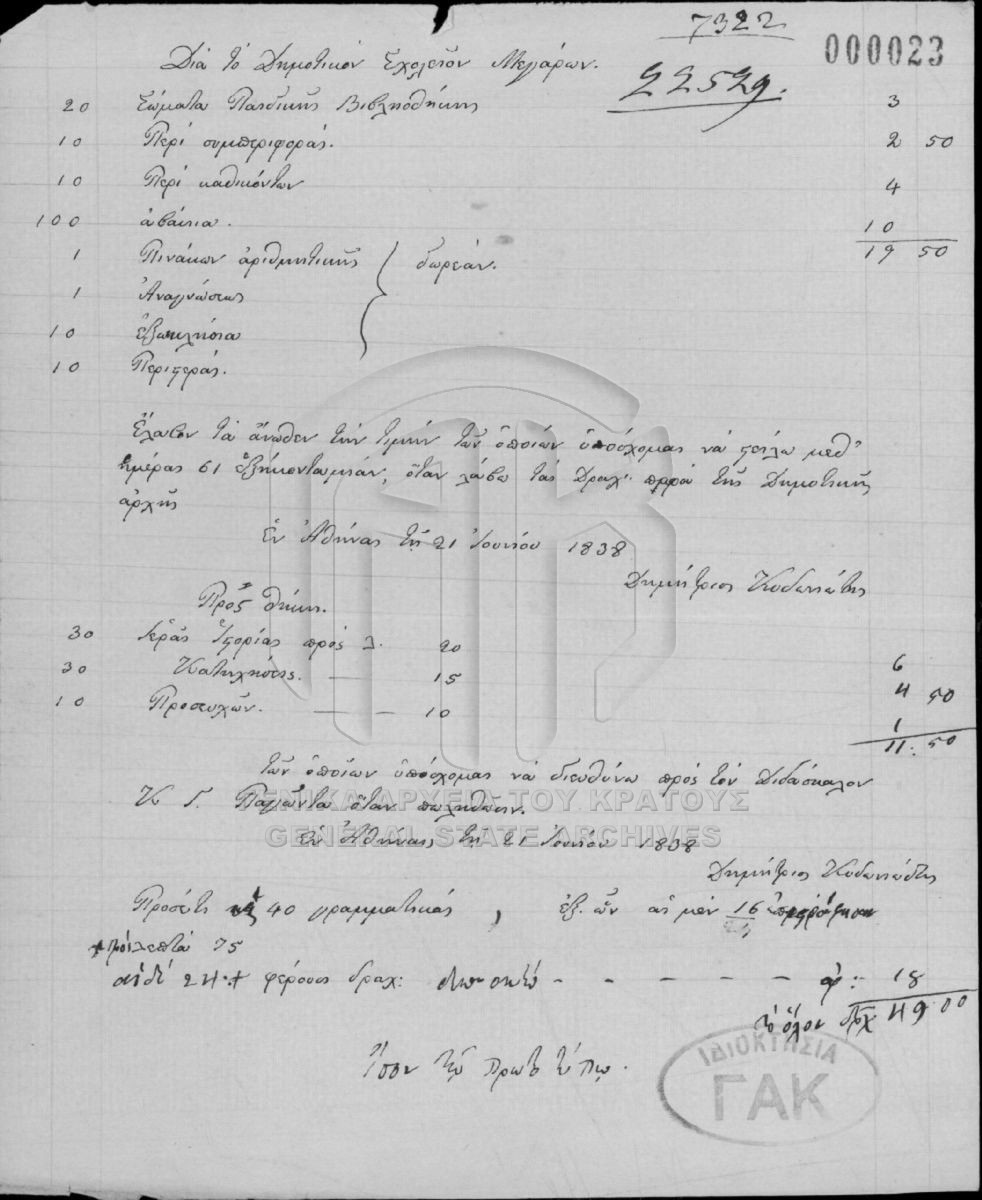 7322
000023
Διὰ τὸ Δημοτικὸν Σχολεῖον Μεγάρων.
22529.
20 Σώματα Παιδικῆς Βιβλιοθήκης 3
10 Περὶ συμπεριφορᾶς. 2 50
10 Περὶ καθηκόντων 4
100 ἀβάκια. 10
19 50
1 Πινάκων ἀριθμητικῆς } δωρεάν.
1 Ἀναγνώσεως
10
10 Περιστεράς.
Ἔλαβον τὰ ἄνωθεν τὴν τιμὴν τῶν ὁποίων ὑπόσχομαι νὰ στείλω μεθ᾽
ἡμέρας 61 ἑξήκοντα μίαν, ὅταν λάβω τὰς Δραχ. παρὰ τῆς Δημοτικῆς
ἀρχῆς
Ἐν Ἀθήναις τῇ 21 Ἰουνίου 1838
Δημήτριος Κυδωνιάτης
Προσθήκη.
30 Ἱερᾶς Ἱστορίας πρὸς λ. 20 6
30 Κατηχήσεις. — 15 4 50
10 Προσευχῶν. — — 10 1
11: 50
τῶν ὁποίων ὑπόσχομαι νὰ διευθύνω πρὸς τὸν Διδάσκαλον
Κ Γ. ὅταν πωληθῶσιν.
ΓΕΝΙΚΑ ΑΡΧΕΙΑ ΤΟΥ ΚΡΑΤΟΥΣ
GENERAL STATE ARCHIVES
Ἐν Ἀθήναις τῇ 21 Ἰουνίου 1838
Δημήτριος Κυδωνιάτης
Προσέτι 40 γραμματικάς, ἐξ ὧν αἱ μὲν 16
πρὸς λεπτά 75
αἱ δὲ 24 φέρουσι δραχ: δεκαοκτώ - - - - - - 18
τὸ ὅλον δρχ 49 00
Ἴσον τῷ πρωτοτύπῳ.
ΙΔΙΟΚΤΗΣΙΑ
ΓΑΚ